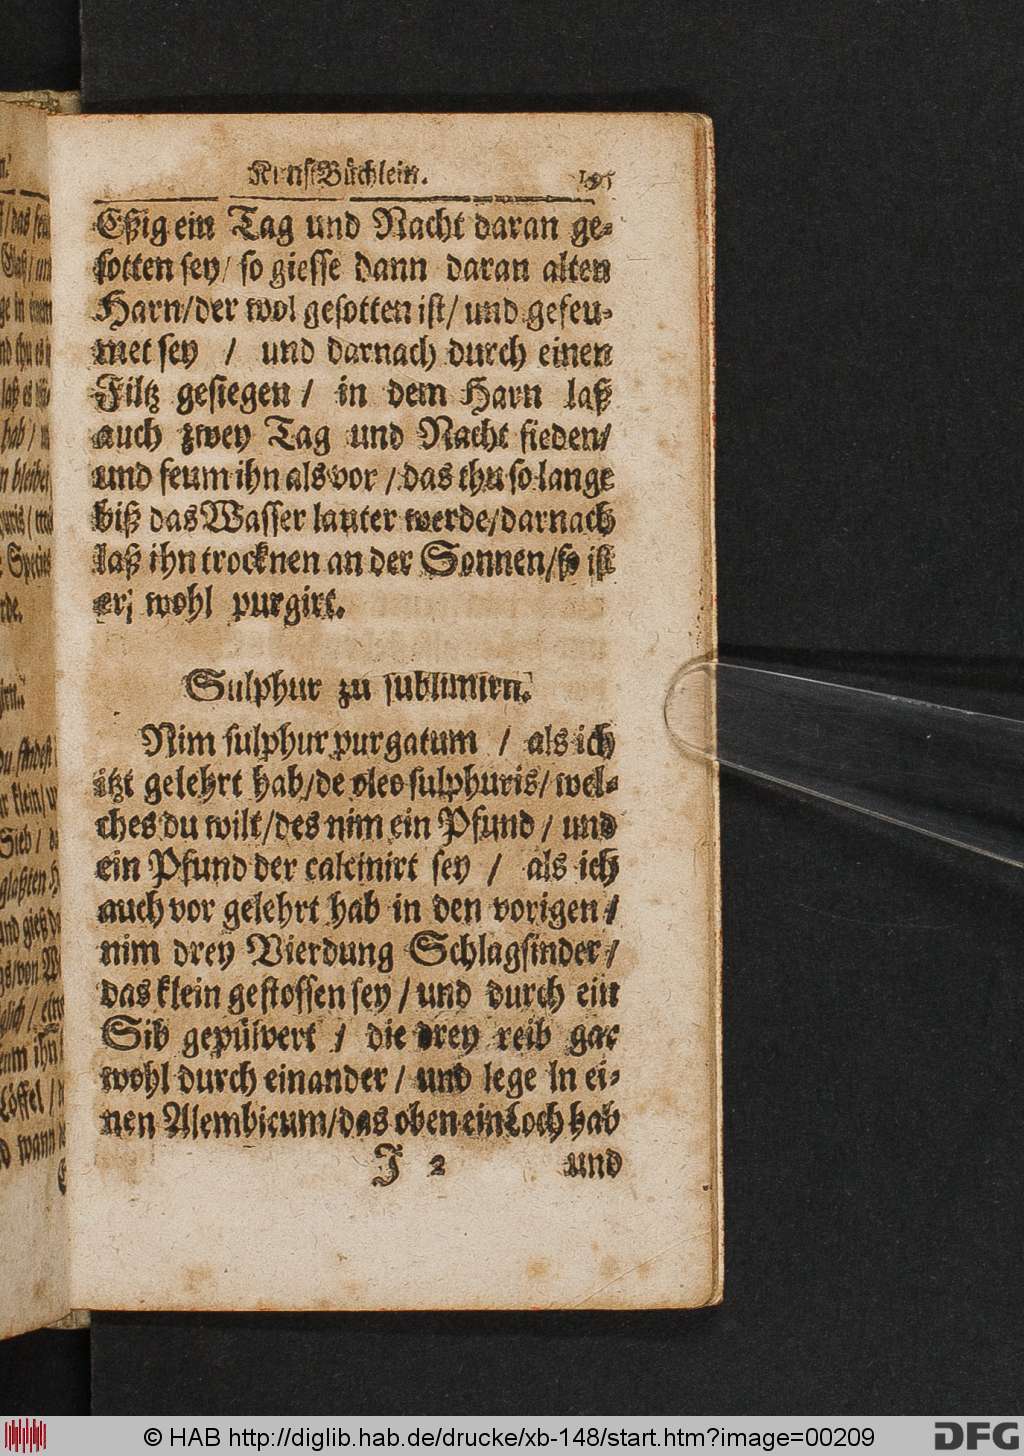 KunstBüchlein. 195
Eßig ein Tag und Nacht daran ge-
sotten sey/ so giesse dann daran alten
Harn/der wol gesotten ist/ und gefeu-
met sey / und darnach durch einen
Filtz gesiegen / in dem Harn laß
auch zwey Tag und Nacht sieden/
und feum ihn als vor / das thu so lange
biß das Wasser lauter werde/darnach
laß ihn trocknen an der Sonnen/so ist
er wohl purgirt.
Sulphur zu sublimirn.
Nim sulphur purgatum / als ich
itzt gelehrt hab/de oleo sulphuris/ wel-
ches du wilt/des nim ein Pfund / und
ein Pfund der calcinirt sey / als ich
auch vor gelehrt hab in den vorigen /
nim drey Vierdung Schlagsinder /
das klein gestossen sey / und durch ein
Sib gepülvert / die drey reib gar
wohl durch einander / und lege in ei-
nen Alembicum/das oben ein Loch hab
J 2 und
© HAB http://diglib.hab.de/drucke/xb-148/start.htm?image=00209
DFG